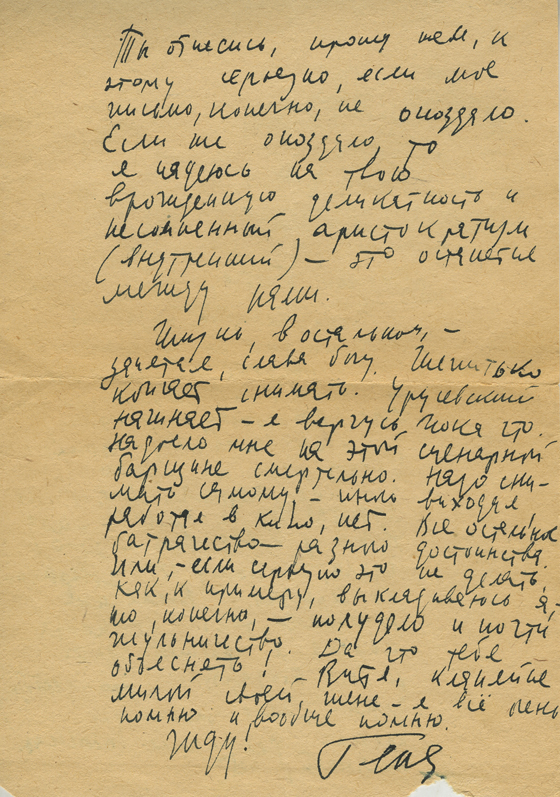 Ты отнесись, прошу тебя, к
этому серьезно, если мое
письмо, конечно, не опоздало.
Если же опоздало, то
я надеюсь на твою
врожденную деликатность и
несомненный аристократизм
(внутренний) – это останется
между нами.
Жизнь, в остальном, –
, слава богу. Шепитько
кончает снимать. Урусевский
начинает – я вернусь пока что.
Надоело мне на этой сценарной
барщине смертельно. Надо сни-
мать самому – иного выхода,
работая в кино, нет. Все остальное
батрачество – разного достоинства.
Или, – если серьезно это не делать,
как, к примеру, выкладываюсь я, –
то, конечно, – полудело и почти
жульничество. Да что тебе
объяснять! Витя, кланяйся
милой своей жене – я всё очень
помню и вообще помню.
Жду!
Гена